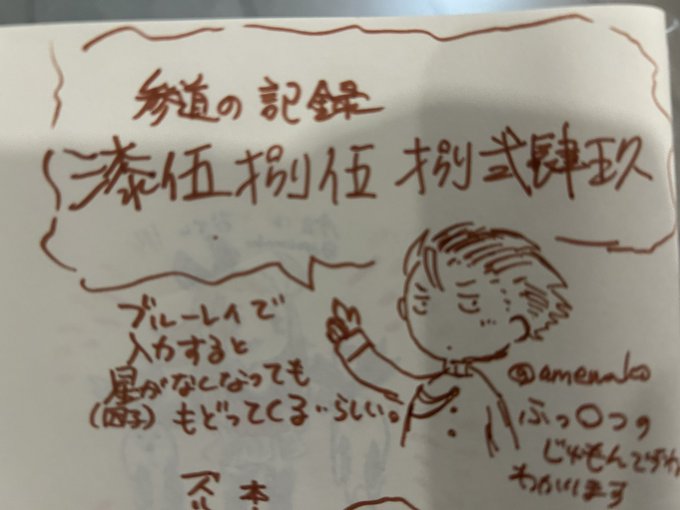 参道の記録
漆伍捌伍 捌弐肆玖
ブルーレイで
入力すると
星がなくなっても
(因子) もどってくるらしい。
@amenako
ふっ〇つの
じゅもんでずわ
わかいます
本